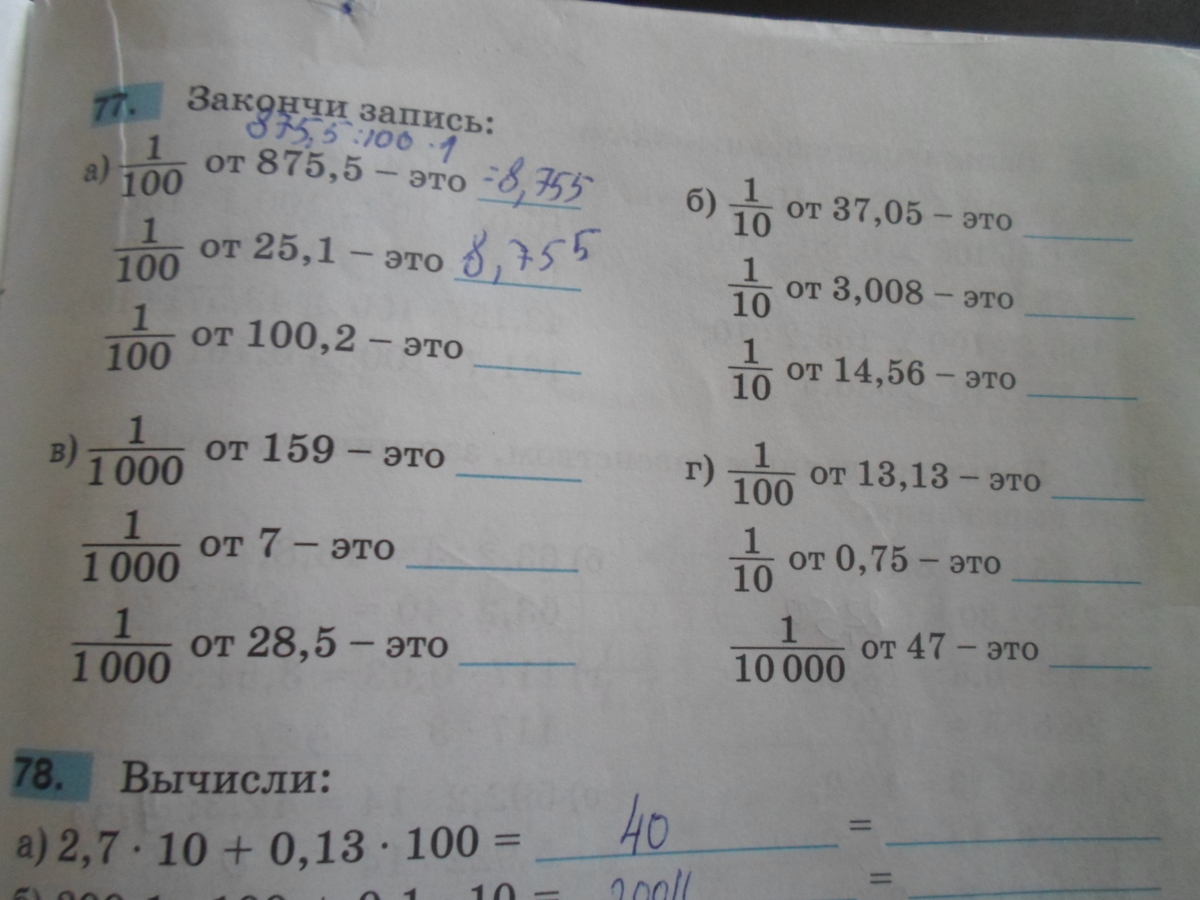 77. Закончи запись:
875,5 :100 ·1
а) 1/100 от 875,5 – это =8,755
1/100 от 25,1 – это 8,755
1/100 от 100,2 – это
б) 1/10 от 37,05 – это
1/10 от 3,008 – это
1/10 от 14,56 – это
в) 1/1 000 от 159 – это
1/1 000 от 7 – это
1/1 000 от 28,5 – это
г) 1/100 от 13,13 – это
1/10 от 0,75 – это
1/10 000 от 47 – это
78. Вычисли:
а) 2,7 · 10 + 0,13 · 100 = 40 =